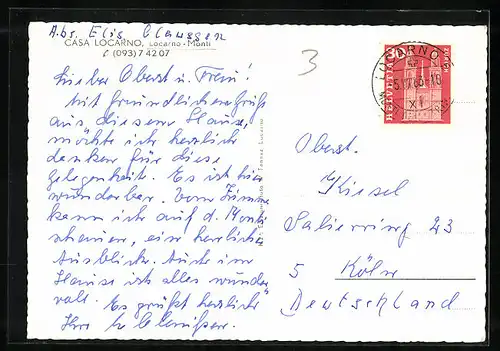 Abs. Elis Claussen
CASA LOCARNO, Locarno-Monti
(093) 7 42 07
3
Lieber Oberst u. Frau!
Mit freundlichem Gruß
aus diesem Hause,
möchte ich herzlich
danken für diese
gelegenheit. Es ist hier
wunderbar. Vom Zimmer
kann ich auf d. Monti
schauen, eine herrliche
Ausblick. Auch im
Hause ist alles wunder
voll. Es grüßt herzlich
Ihre
HELVETIA
LOCARNO
Oberst.
Kiesel
Salierring 23
5 Köln
Deutschland